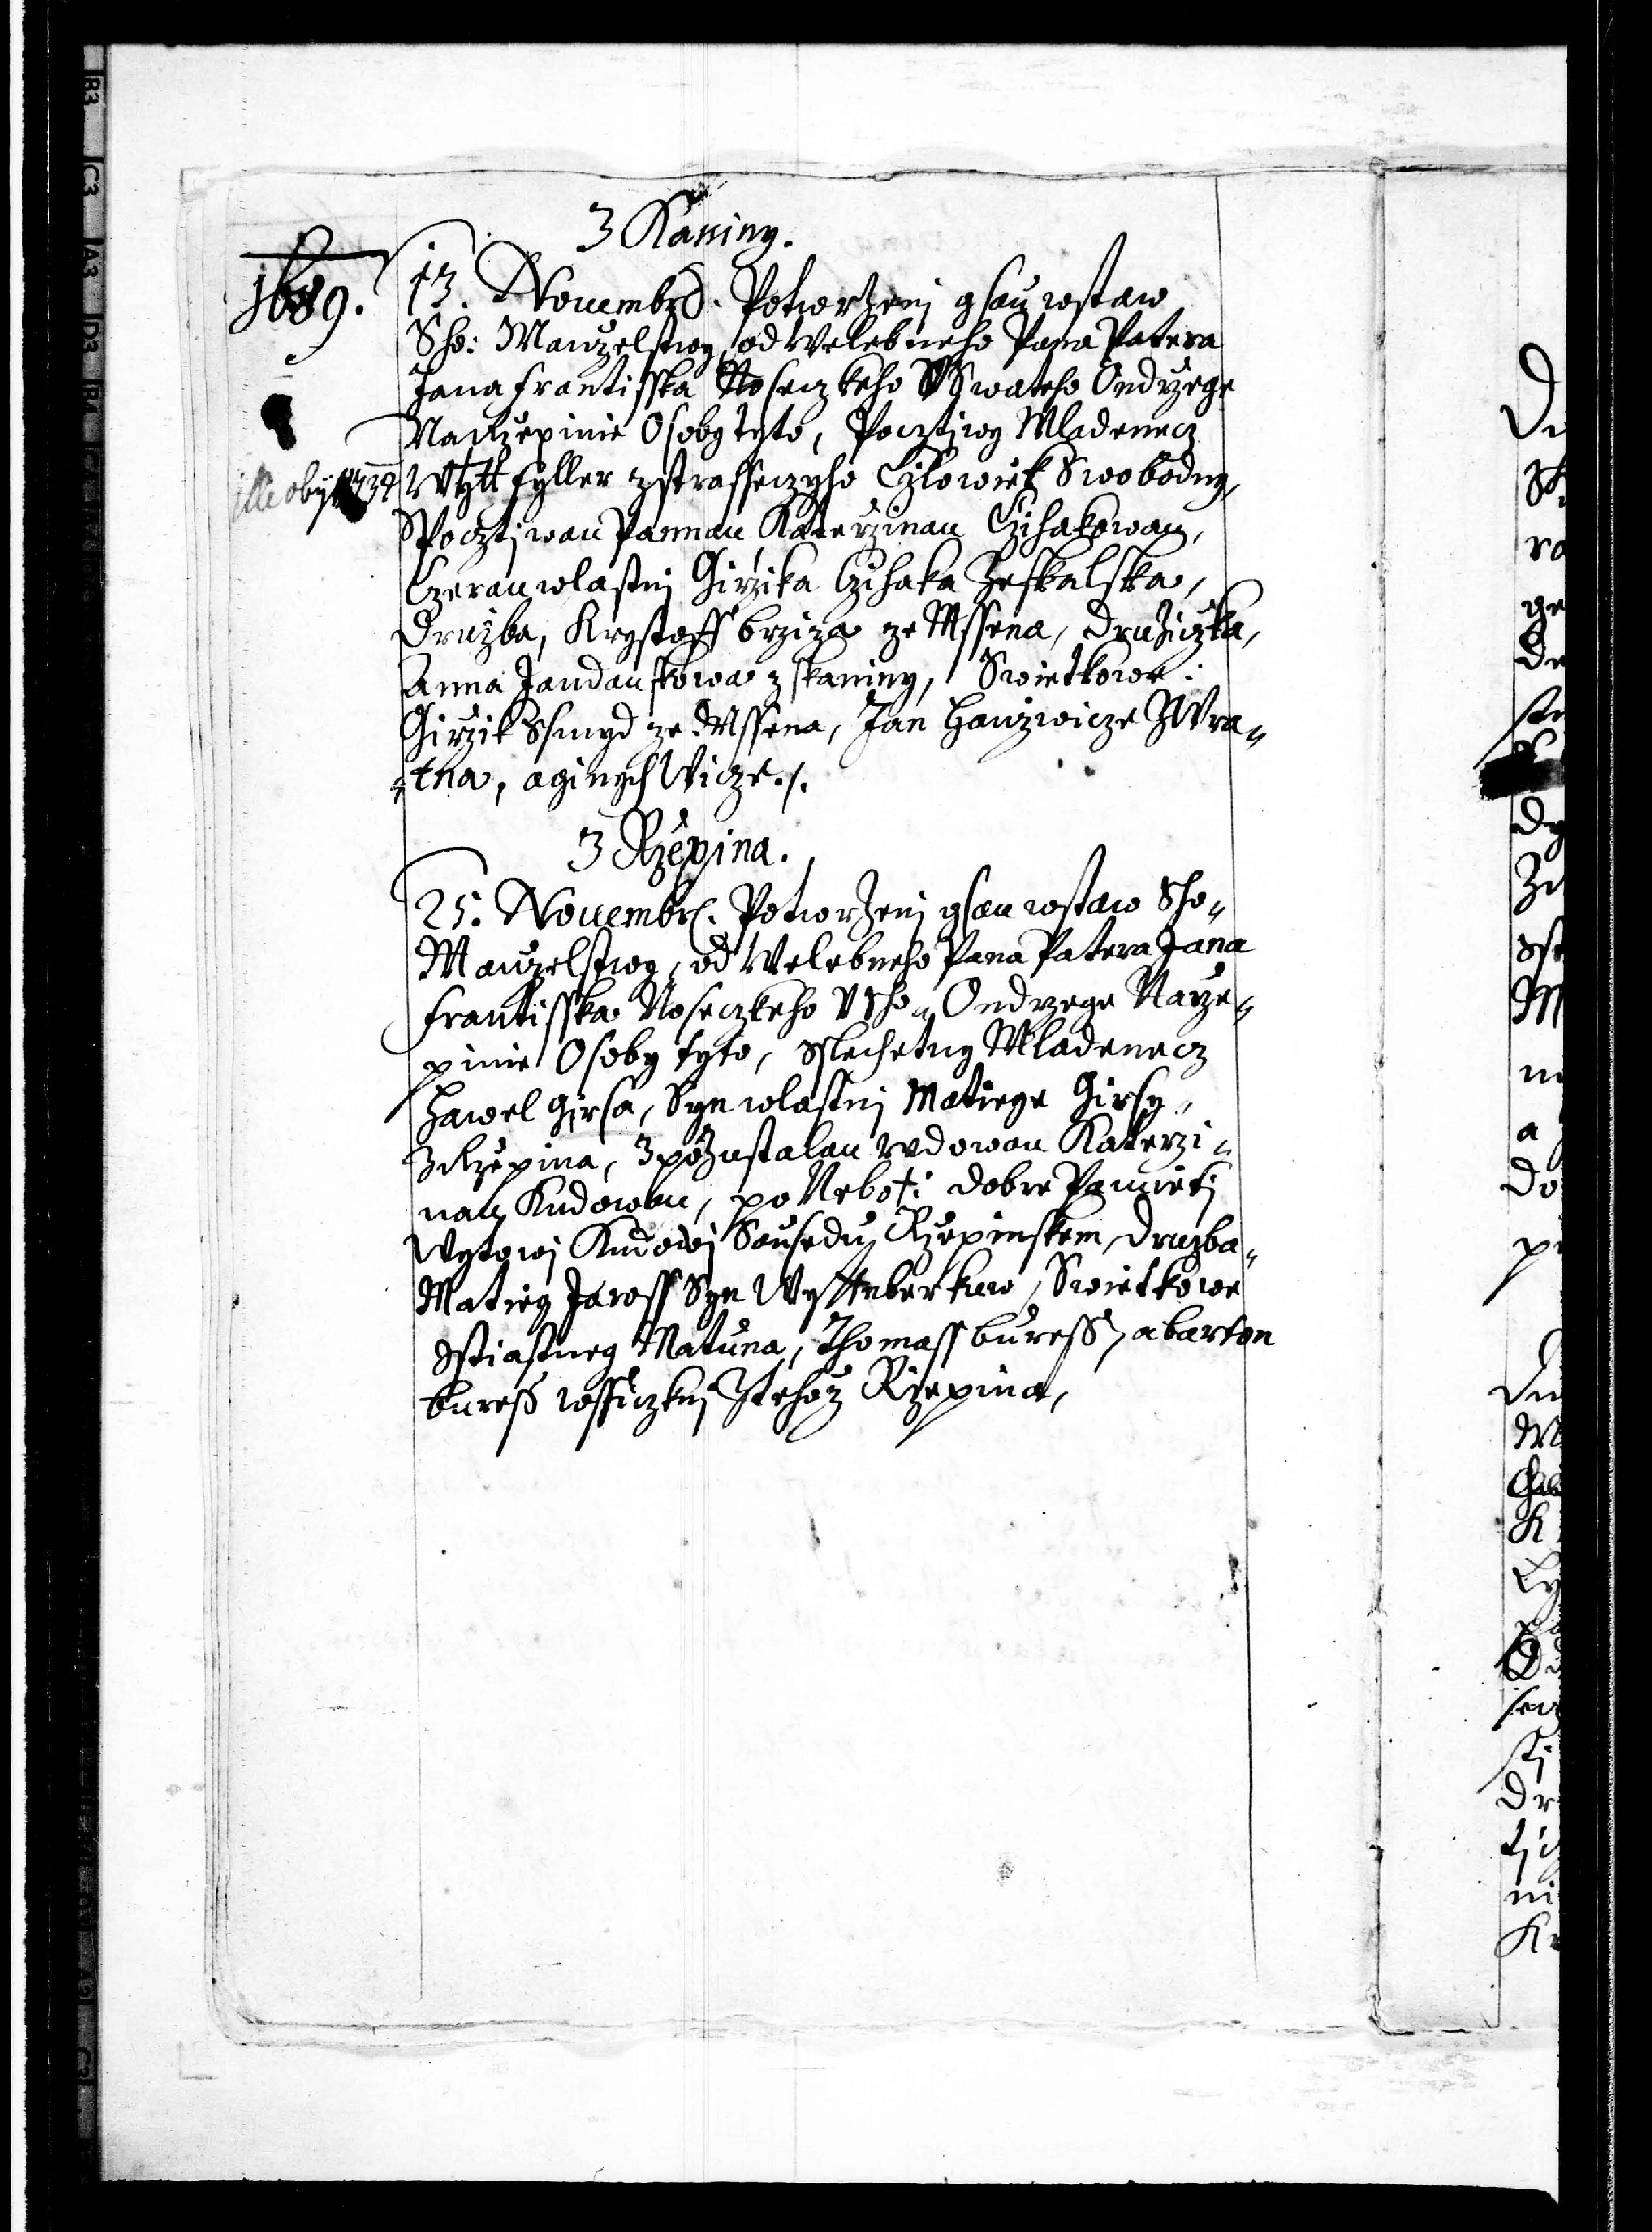 Z Kaniny.
1689.
13. Nouembris. Potwrzenj gsau wstaw
Sho: Manzelstwy, od Welebneho Pana Patera
Jana Frantisska Noseczkeho V Swateho Ondrzege
Na Rzepinie Osoby tyto, Pocztiwy Mladenecz
ille obyt 1734
Wytt Fyller z strasseczyho Czlowiek Swobodny,
S Pocztiwau Pannau Katerzinau Czihakowau,
Czerau wlastnj Girzika Czihaka Zeskalska,
Druzba, Krystoff brziza ze Mssena, Druziczka,
Anna Jandauskowa z skaniny, Swietkowe:
Girzik Ssmyd ze Mssena, Jan Hanzwicze ZWra„
„tna, aginych Wicze./.
Z Rzepina.
25. Nouembr. Potwrzenj gsau wstaw Sho„
Manzelstwy, od Welebneho Pana Patera Jana
Frantisska Noseczkeho V Sho„ Ondrzege Narze„
pinie Osoby tyto, Sslechetny Mladenecz
Hawel Girsa, Syn wlastnj Matiege Girsy„
Z Rzepina, Z pozustalau wdowau Katerzi„
nau Kudowau, po Nebosti: dobre Pamieti
Wytowi Kudowi Sausedu Rzepinskem, Druzba„
Matieg Jaross Syn Wytt
Swietkowe
Sstiastneg Matuna, Thomass buress, a barton
buress wssiczknj Ztehoz Rzepina,